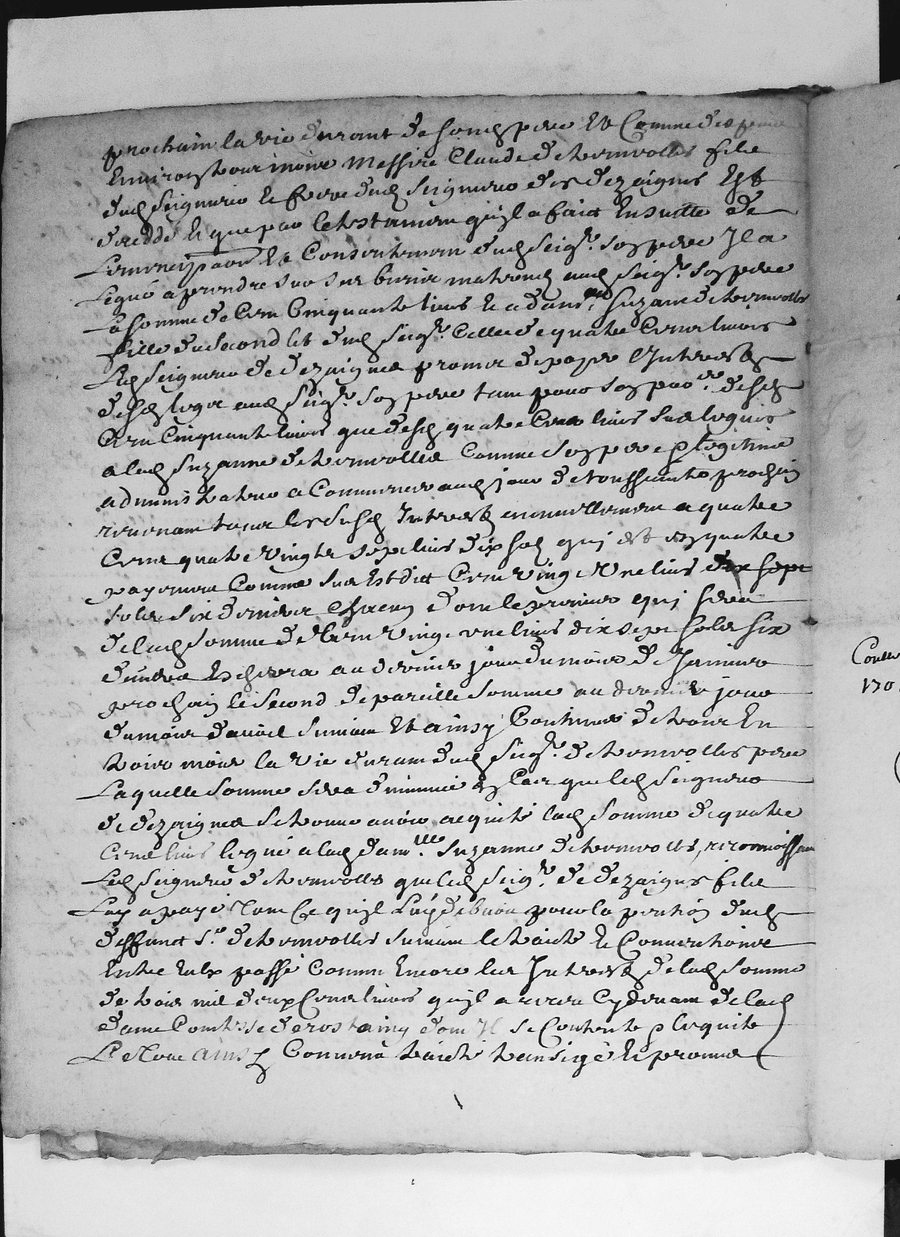 prochain la vie durant de sond pere Et Comme des puis
Environ trois mois Messire Claude de tournvolles fils
dud Seigneur et frere dud Seigneur de dezaignes Est
dcedde et que par le testamen quil a faict Ensuitte de
Lemencipaon Et Consentemen dud Seigr. son pere Il a
Legué a prendre sur aud Seigr. son pere
La somme de Cent Cinquante livres Et a damlle Suzane de tournvolles
fille du Second lit dud Seigr. Celle de quatre Cens livres
Led Seigneur de dezaignes promet de payer l'Interest
desd legat aud Seigr. son pere tant pour son desd
Cent Cinquante livres que desd quatre Cens livres sus leguis
a lad Suzanne de tournvolles Comme son pere & legitime
administrateur a Commencer aud jour de toussaints prochain
revenant tous les susd Interest annuellemen a quatre
Cens quatre vingts sept livres dix sols qui est en quatre
payemen Comme sus Est dit Cent vingt Une livres dix sept
sols six deniers chacun dont le premier qui sera
de lad somme de Cent vingt une livres dix sept sols six
deniers Eschera au dernier jour du mois de Janvier
prochain le second de pareille somme au dernier jour
du mois d'avril suivan Et ainsy Continuer de trois En
trois mois la vie durant dud Seigr. de tournvolles pere
Laquelle somme sera diminuée En Cas que led Seigneur
de dezaignes se trouve avoir acquité lad somme de quatre
Cens livres legué a lad damlle Suzanne de tournvolles, reconnoissan
Led Seigneur de tournvolles que led Seigr. de dezaignes fils
Luy a payé tout Ce quil Luy debvoit pour la pention dud
deffunct Sr. de tournvolles suivan le traicté Et Conventions
Entre Eulx passé Comme Encore les Interest de lad somme
de trois mil deux Cens livres quil a receu Cydevant de lad
dame Comtesse de rostaing dont Il se Contente & l'equite
Le tout ainsy Convenu traicté transigé Et promis
Contle
170